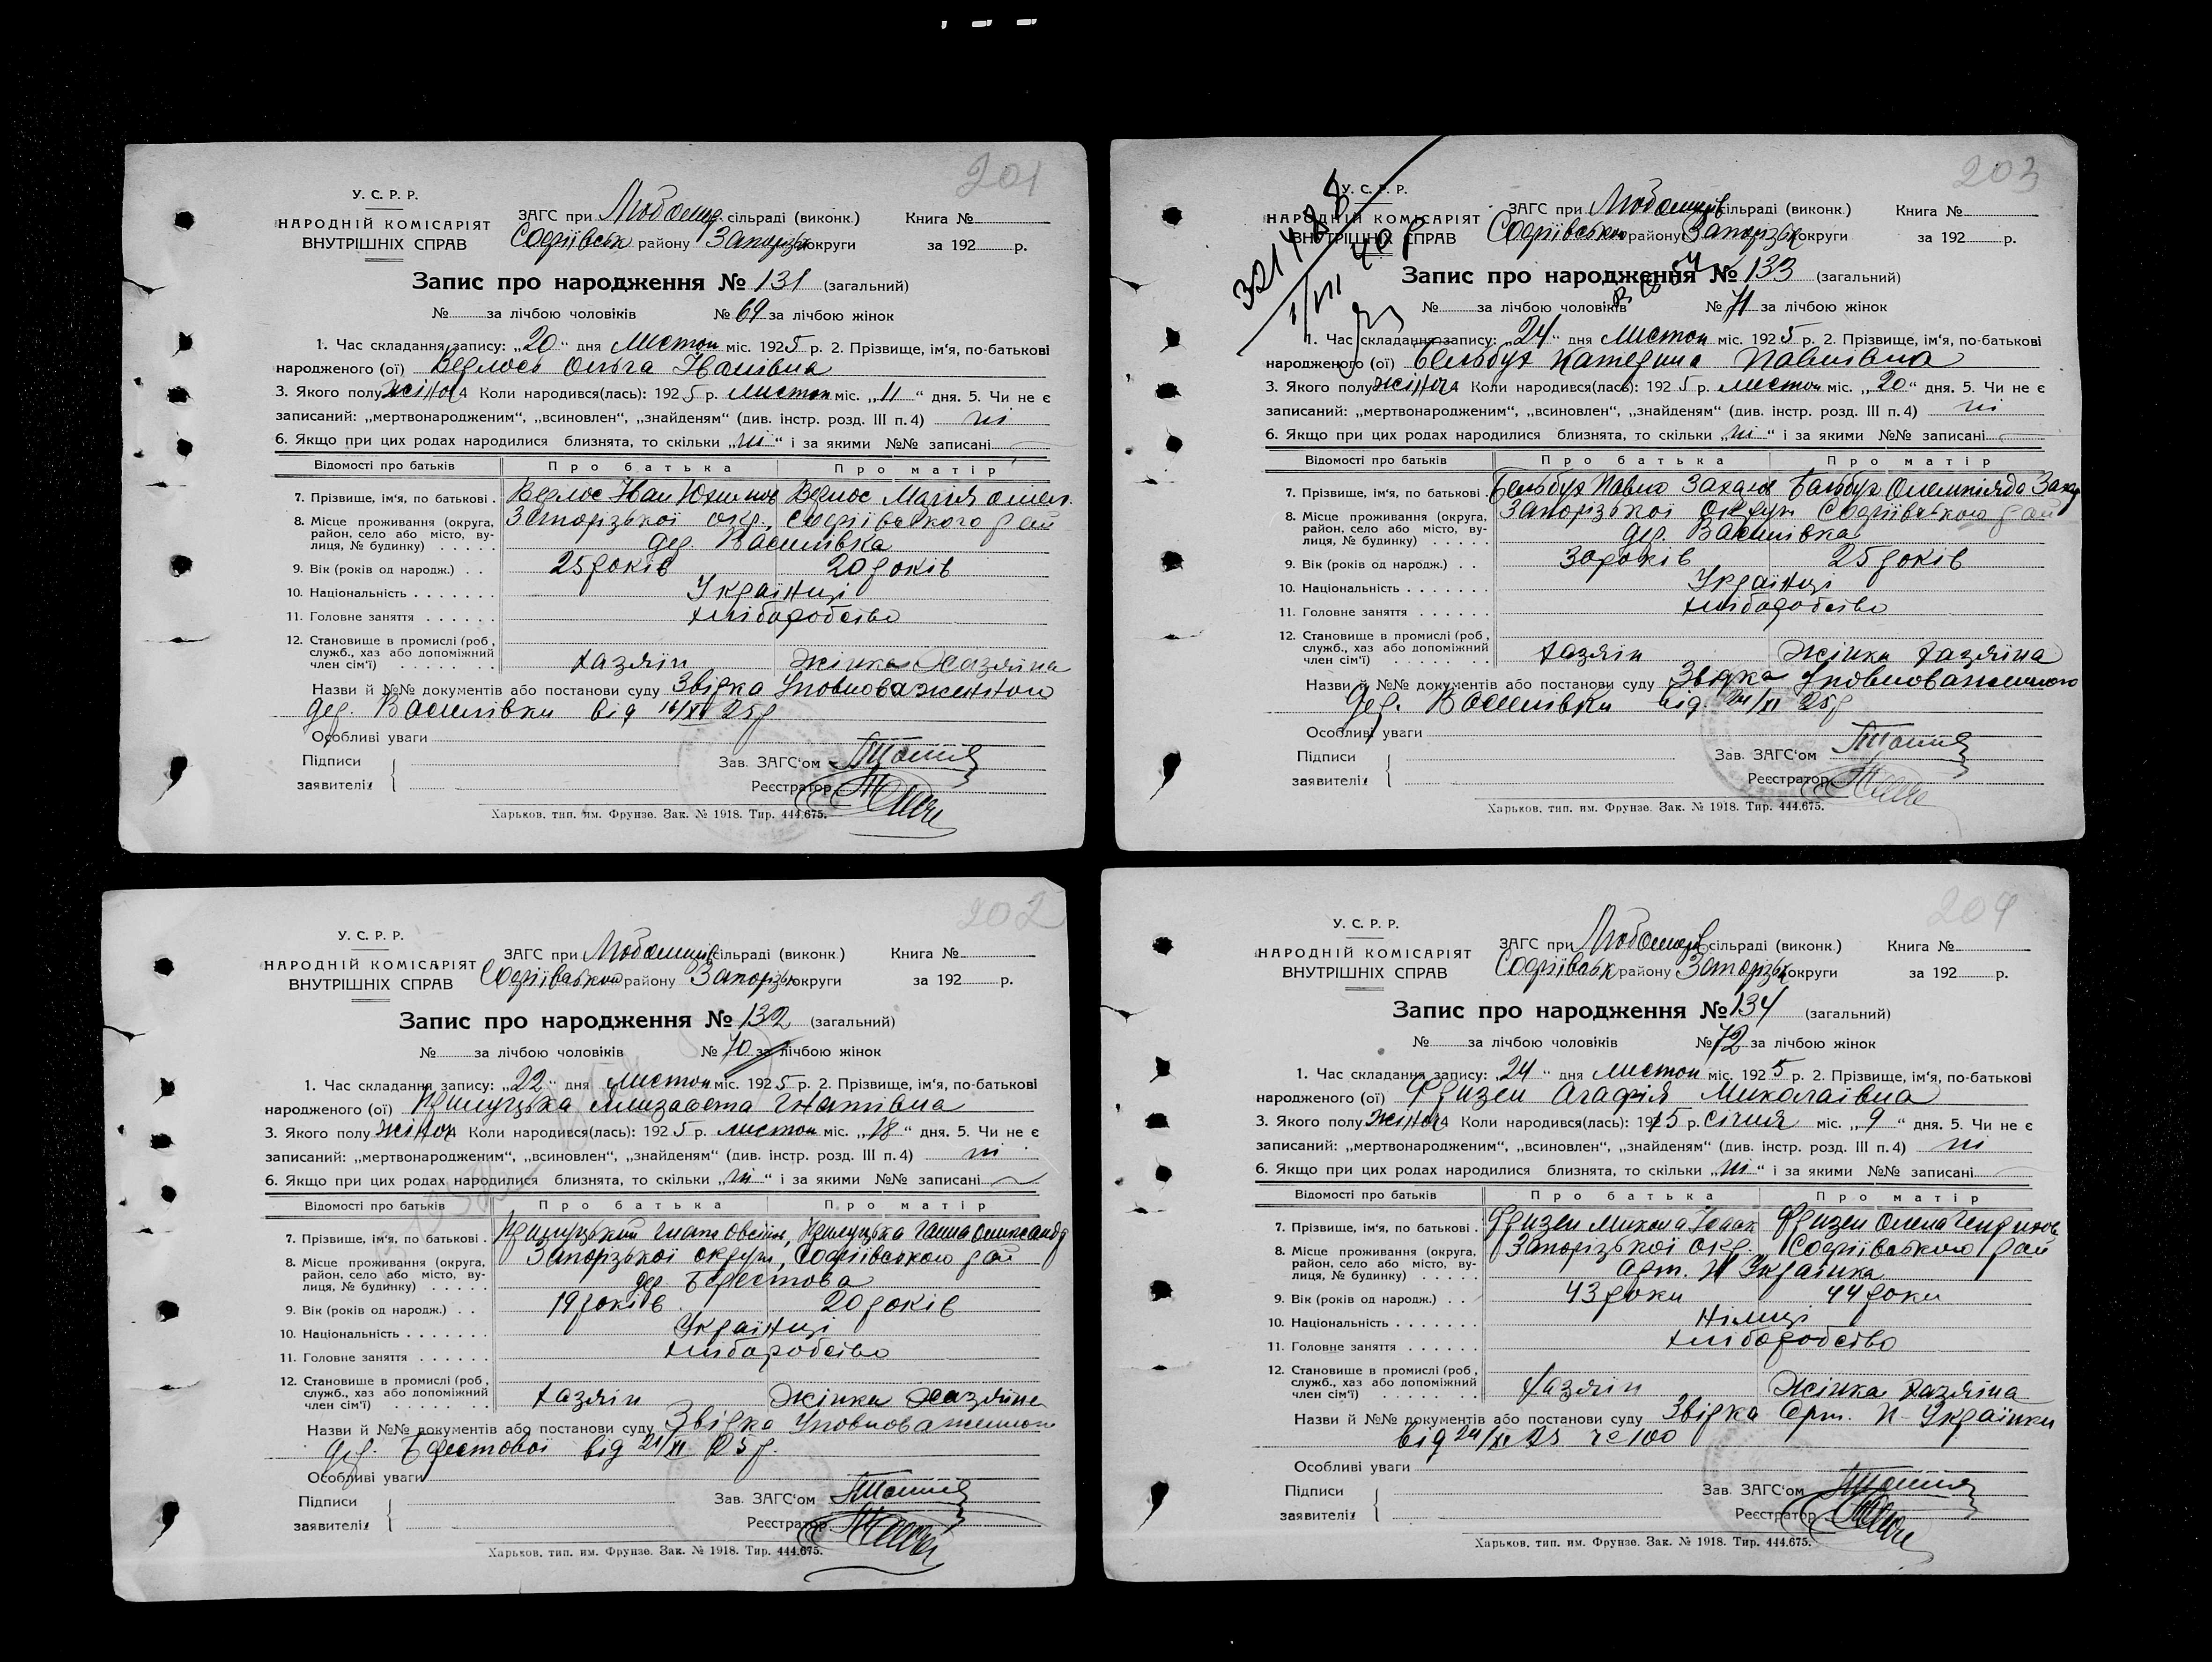 201
У. С. Р. Р.
НАРОДНІЙ КОМІСАРІЯТ
ВНУТРІШНІХ СПРАВ
ЗАГС при Любомир. сільраді (виконк.) Книга №
Софіївськ району Запорізьк округи за 192 р.
Запис про народження № 131 (загальний)
№ за лічбою чоловіків № 69 за лічбою жінок
1. Час складання запису: „20“ дня Листоп міс. 1925 р. 2. Прізвище, ім‘я, по-батькові
народженого (ої) Ольга Іванівна
3. Якого полу жіноч 4 Коли народився(лась): 1925 р. листоп міс. „11“ дня. 5. Чи не є
записаний: „мертвонародженим“, „всиновлен“, „знайденям“ (див. інстр. розд. III п. 4) ні
6. Якщо при цих родах народилися близнята, то скільки „ні“ і за якими №№ записані
Відомості про батьків Про батька Про матір
7. Прізвище, ім‘я, по батькові . Іван Юхимов Марія
8. Місце проживання (округа, район, село або місто, вулиця, № будинку) Запорізької окр., Софіївського рай
дер. Василівка
9. Вік (років од народж.) 25 років 20 років
10. Національність Українці
11. Головне заняття хліборобство
12. Становище в промислі (роб, служб., хаз або допоміжний член сім‘ї) хазяїн жінка хазяїна
Назви й №№ документів або постанови суду Звідка Уповноваженного
дер. Василівки від 16/XI 25 р
Особливі уваги
Підписи
заявителів
Зав. ЗАГС‘ом
Реєстратор
Харьков, тип. им. Фрунзе. Зак. № 1918. Тир. 444.675.
203
321488
У. С. Р. Р.
НАРОДНІЙ КОМІСАРІЯТ
ВНУТРІШНІХ СПРАВ
ЗАГС при Любомирів сільраді (виконк.) Книга №
Софіївського району Запорізьк округи за 192 р.
Запис про народження № 133 (загальний)
№ за лічбою чоловіків № 71 за лічбою жінок
1. Час складання запису: „24“ дня Листоп міс. 1925 р. 2. Прізвище, ім‘я, по-батькові
народженого (ої) Бельбух Катерина Павлівна
3. Якого полу жіноч 4 Коли народився(лась): 1925 р. листоп міс. „20“ дня. 5. Чи не є
записаний: „мертвонародженим“, „всиновлен“, „знайденям“ (див. інстр. розд. III п. 4) ні
6. Якщо при цих родах народилися близнята, то скільки „ні“ і за якими №№ записані
Відомості про батьків Про батька Про матір
7. Прізвище, ім‘я, по батькові . Бельбух Павло Захаров Бельбух Олемпіяда Захар
8. Місце проживання (округа, район, село або місто, вулиця, № будинку) Запорізької округи Софіївського рай
дер. Василівка
9. Вік (років од народж.) 30 років 25 років
10. Національність Українці
11. Головне заняття хліборобство
12. Становище в промислі (роб, служб., хаз або допоміжний член сім‘ї) хазяїн жінка хазяїна
Назви й №№ документів або постанови суду Звідка Уповноваженного
дер. Василівки від 24/XI 25 р
Особливі уваги
Підписи
заявителів
Зав. ЗАГС‘ом
Реєстратор
Харьков, тип. им. Фрунзе. Зак. № 1918. Тир. 444.675.
202
У. С. Р. Р.
НАРОДНІЙ КОМІСАРІЯТ
ВНУТРІШНІХ СПРАВ
ЗАГС при Любомирів сільраді (виконк.) Книга №
Софіївського району Запорізьк округи за 192 р.
Запис про народження № 132 (загальний)
№ за лічбою чоловіків № 70 за лічбою жінок
1. Час складання запису: „22“ дня листоп міс. 1925 р. 2. Прізвище, ім‘я, по-батькові
народженого (ої) Прилуцька Єлизавета Гнатівна
3. Якого полу жіноч 4 Коли народився(лась): 1925 р. листоп міс. „18“ дня. 5. Чи не є
записаний: „мертвонародженим“, „всиновлен“, „знайденям“ (див. інстр. розд. III п. 4) ні
6. Якщо при цих родах народилися близнята, то скільки „ні“ і за якими №№ записані
Відомості про батьків Про батька Про матір
7. Прізвище, ім‘я, по батькові . Прилуцький Гнат Прилуцька Ганна Олександр
8. Місце проживання (округа, район, село або місто, вулиця, № будинку) Запорізької округи, Софіївського рай
дер. Берестова
9. Вік (років од народж.) 19 років 20 років
10. Національність Українці
11. Головне заняття хліборобство
12. Становище в промислі (роб, служб., хаз або допоміжний член сім‘ї) хазяїн жінка хазяїна
Назви й №№ документів або постанови суду Звідка Уповноваженного
дер. Берестової від 21/XI 25 р.
Особливі уваги
Підписи
заявителів
Зав. ЗАГС‘ом
Реєстратор
Харьков, тип. им. Фрунзе. Зак. № 1918. Тир. 444.675.
204
У. С. Р. Р.
НАРОДНІЙ КОМІСАРІЯТ
ВНУТРІШНІХ СПРАВ
ЗАГС при Любомирів сільраді (виконк.) Книга №
Софіївськ району Запорізьк округи за 192 р.
Запис про народження № 134 (загальний)
№ за лічбою чоловіків № 72 за лічбою жінок
1. Час складання запису: „24“ дня листоп міс. 1925 р. 2. Прізвище, ім‘я, по-батькові
народженого (ої) Фризен Агафія Миколаївна
3. Якого полу жіноч 4 Коли народився(лась): 1915 р. січня міс. „9“ дня. 5. Чи не є
записаний: „мертвонародженим“, „всиновлен“, „знайденям“ (див. інстр. розд. III п. 4) ні
6. Якщо при цих родах народилися близнята, то скільки „ні“ і за якими №№ записані
Відомості про батьків Про батька Про матір
7. Прізвище, ім‘я, по батькові . Фризен Микола Ісаак Фризен Олена
8. Місце проживання (округа, район, село або місто, вулиця, № будинку) Запорізької окр. Софіївського рай
арт. Н Українка
9. Вік (років од народж.) 43 роки 44 роки
10. Національність Німці
11. Головне заняття хліборобство
12. Становище в промислі (роб, служб., хаз або допоміжний член сім‘ї) хазяїн жінка хазяїна
Назви й №№ документів або постанови суду Звідка Арт. Н-Українки
від 24/XI 25 № 100
Особливі уваги
Підписи
заявителів
Зав. ЗАГС‘ом
Реєстратор
Харьков, тип. им. Фрунзе. Зак. № 1918. Тир. 444.675.